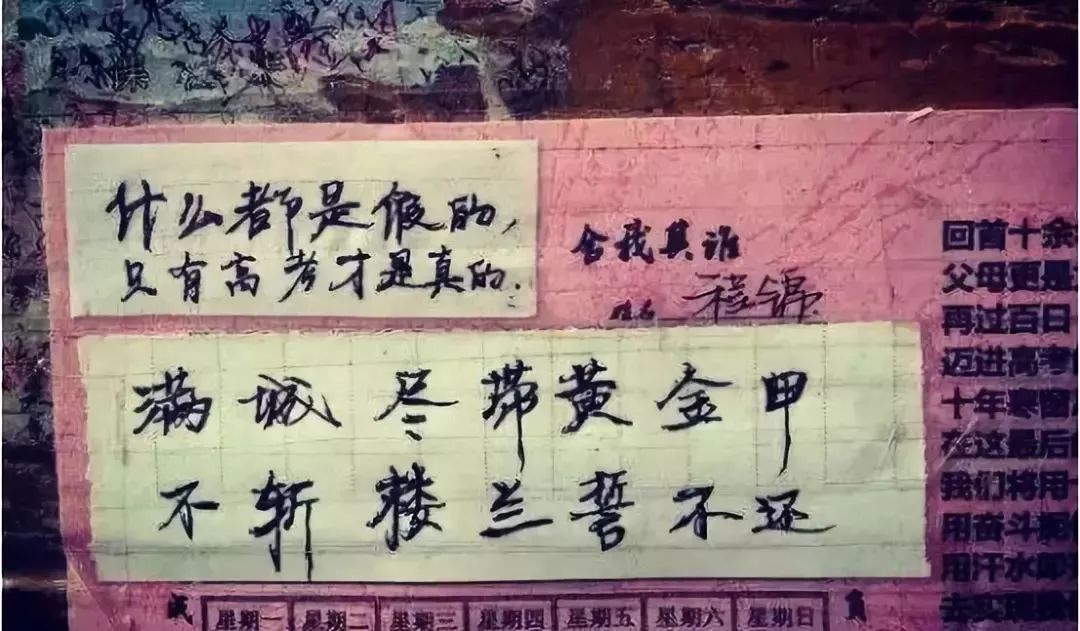 什么都是假的,
只有高考才是真的.
舍我其谁
程锦
满城尽带黄金甲
不斩楼兰誓不还
回首十余
父母更是
再过百日
迈进高考
十年寒窗
在这最后
我们将用
用奋斗
用汗水
去实现
星期一 星期二 星期三 星期四 星期五 星期六 星期日